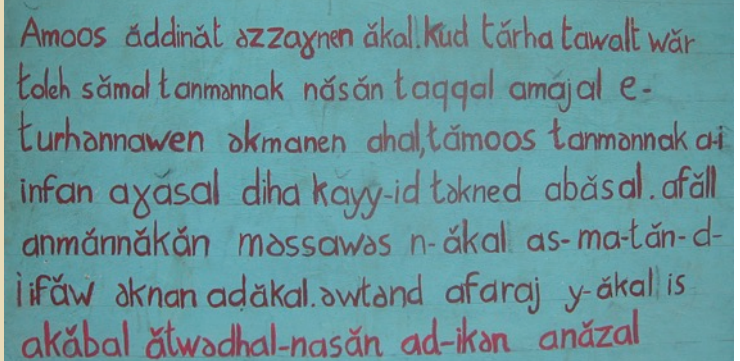 Amoos ăddinăt əzzaɣnen ăkal. Kud tărha tawalt wăr
toleh sămal tanmənnak năsăn taqqal amăjal e-
turhənnawen əkmanen dhal, tămoos tanmənnak a-i
infan aɣăsal diha kăyy-id təkned abăsal. afăll
anmănnăkăn məssawəs n-ăkal as-ma-tăn-d-
iifăw əknan adăkal. əwtənd afaraj y-ăkal is
akăbal ătwədhal-nasăn ad-ikən anăzal